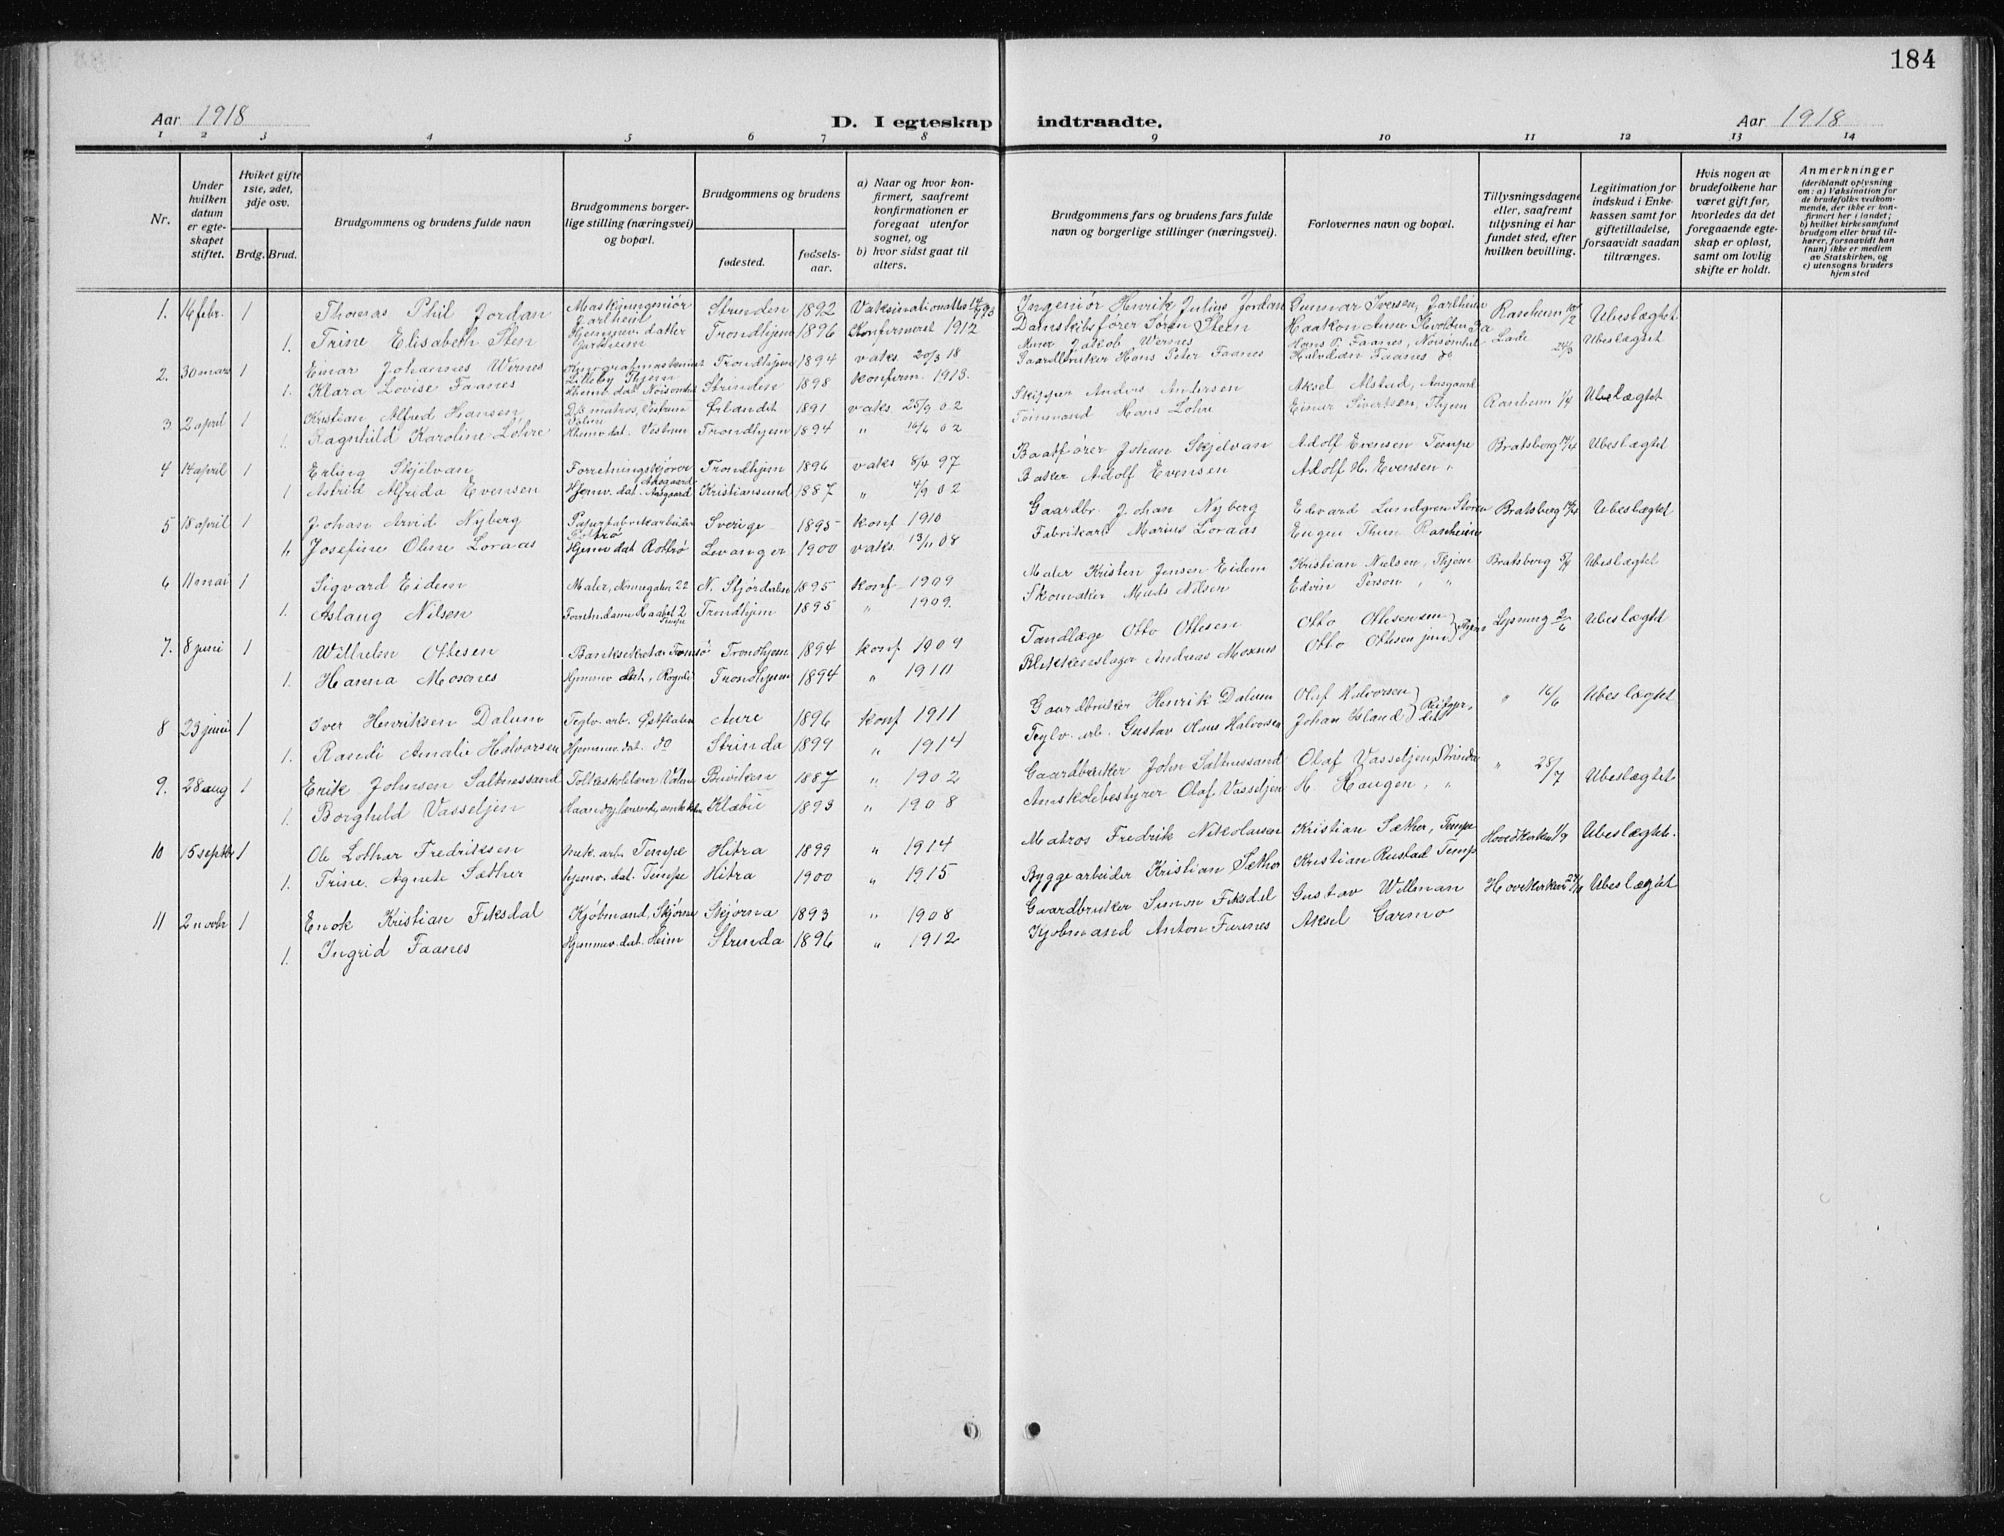 184
Aar 1918
D. I egteskap indtraadte.
Aar 1918
1 2 3 4 5 6 7 8 9 10 11 12 13 14
Nr.
Under hvilken datum er egteskapet stiftet.
Hviket gifte 1ste, 2det, 3dje osv.
Brdg. Brud.
Brudgommens og brudens fulde navn
Brudgommens borgerlige stilling (næringsvei) og bopæl.
Brudgommens og brudens
fødested.
fødselsaar.
a) Naar og hvor konfirmert, saafremt konfirmationen er foregaat utenfor sognet, og
b) hvor sidst gaat til alters.
Brudgommens fars og brudens fars fulde navn og borgerlige stillinger (næringsvei).
Forlovernes navn og bopæl.
Tillysningsdagene eller, saafremt tillysning ei har fundet sted, efter hvilken bevilling.
Legitimation for indskud i Enkekassen samt for giftetilladelse, forsaavidt saadan tiltrænges.
Hvis nogen av brudefolkene har været gift før, hvorledes da det foregaaende egteskap er opløst, samt om lovlig skifte er holdt.
Anmerkninger
(deriblandt oplysning om: a) Vaksination for de brudefolks vedkommende, der ikke er konfirmert her i landet; b) hvilket kirkesamfund brudgom eller brud tilhører, forsaavidt han (hun) ikke er medlem av Statskirken, og c) utensogns bruders hjemsted
1. 14 febr. 1 Thomas Phil Jordan Maskiningeniør Jarlheim Strinden 1892 Vaksinationatts Ingeniør Henrik Julius Jordan Gunnar Iversen, Jarlheim Ranheim 10/2 Ubeslægtet
1. Trine Elisabeth Sten Hjemmev. datter Jarlheim Trondhjem 1896 Konfirmerst 1912 Damskibsfører Sören Steen Haakon
2. 30 mars 1 Einar Johannes Wernes Lilleby Thjem Trondhjem 1894 vaks. 20/3 18 Murer Jakob Wernes Hans P. Faanes, Lade 24/3 Ubeslægtet
1. Klara Lovise Faanes Hjemv. dat Strinden 1898 konfirm. 1913. Gaardbruker Hans Peter Faanes Halvdan Faanes do
3 2 april 1 Kristian Alfred Hansen D/s matros, Ørlandet 1891 vaks. 25/9 02 Skipper Anders Andersen Aksel Alstad, Ranheim 1/4 Ubeslægtet
1. Ragnhild Karoline Løhre Hjemv dat. Trondhjem 1894 " 16/6 02 Hans Löhre Einar Sivertsen, Thjem
4 14 april 1 Erling Skjelvan Forretningskjører Trondhjem 1896 vaks 8/4 97 Baatfører Johan Skjelvan Adolf Evensen Tempe Bratsberg 14/4 Ubeslægtet
1 Astrid Alfrida Evensen Hjemv. dat. Aasgaard Kristiansund 1887 " 4/9 02 Baker Adolf Evensen Adolf H. Evensen "
5 18 april 1 Johan Arvid Nyberg Papirfabrikarbeider Sverige 1895 konf 1910 Gaardbr. Johan Nyberg Edvard Lundgren Bratsberg 14/4 Ubeslægtet
1. Josefine Oline Loraas Hjemv dat Levanger 1900 vaks. 13/11 08 Fabrikarb Marius Loraas Eugen Thun Ranheim
6 11 mai 1 Sigvard Eidem Maler, Nonnegaten 22 N. Stjørdalen 1895 konf 1909 Maler Kristen Jensen Eidem Kristian Nielsen, Thjem Bratsberg Ubeslægtet
1. Aslaug Nilsen Trondhjem 1895 " 1909. Skomaker Mads Nilsen Edvin Person " "
7. 8 juni 1 Wilhelm Ottesen Banksekretær Tromsø Trondhjem 1894 konf 1909 Tandlæge Otto Ottesen Otto Ottesen sen Thjem Lysning 2/6 Ubeslægtet
1. Hanna Moxnes Hjemmev dat, Trondhjem 1894 " 1910 Blikkenslager Andreas Moxnes Otto Ottesen jun
8 23 juni 1 Iver Henriksen Dalum Teglv. arb. Aure 1896 konf 1911 Gaardbruker Henrik Dalum Olaf Halvorsen " 16/6 Ubeslægtet
1. Randi Amalie Halvorsen Hjemmev. dat. do Strinda 1899 " 1914 Teglv. arb. Gustav Olaus Halvorsen Johan Island
9. 28 aug 1 Erik Johnsen Saltnessand Folkeskolelærer Buviken 1887 " 1902 Gaardbruker John Saltnessand Olaf Vasseljen, Strinda " 28/7 Ubeslægtet
1. Borghild Vasseljen Klæbu 1893 " 1908 Amskolebestyrer Olaf Vasseljen H. Haugen, "
10 15 septbr 1 Ole Lothar Fredriksen mek. arb. Tempe Hitra 1899 " 1914 Matros Fredrik Nikolaisen Kristian Sæther, Tempe Hovedkirken 1/9 Ubeslægtet.
1. Trine Agnete Sæther hjemv. dat. Tempe Hitra 1900 " 1915 Byggearbeider Kristian Sæther Kristian Rustad Tempe
11 2 novbr 1 Enok Kristian Fiksdal Kjøbmand, Skjørna Skjørna 1893 " 1908 Gaardbruker Simon Fiksdal Gustav Willman Ubeslægtet
1. Ingrid Faanes Hjemmev. dat. Heim Strinda 1896 " 1912 Kjøbmand Anton Aksel Garmo